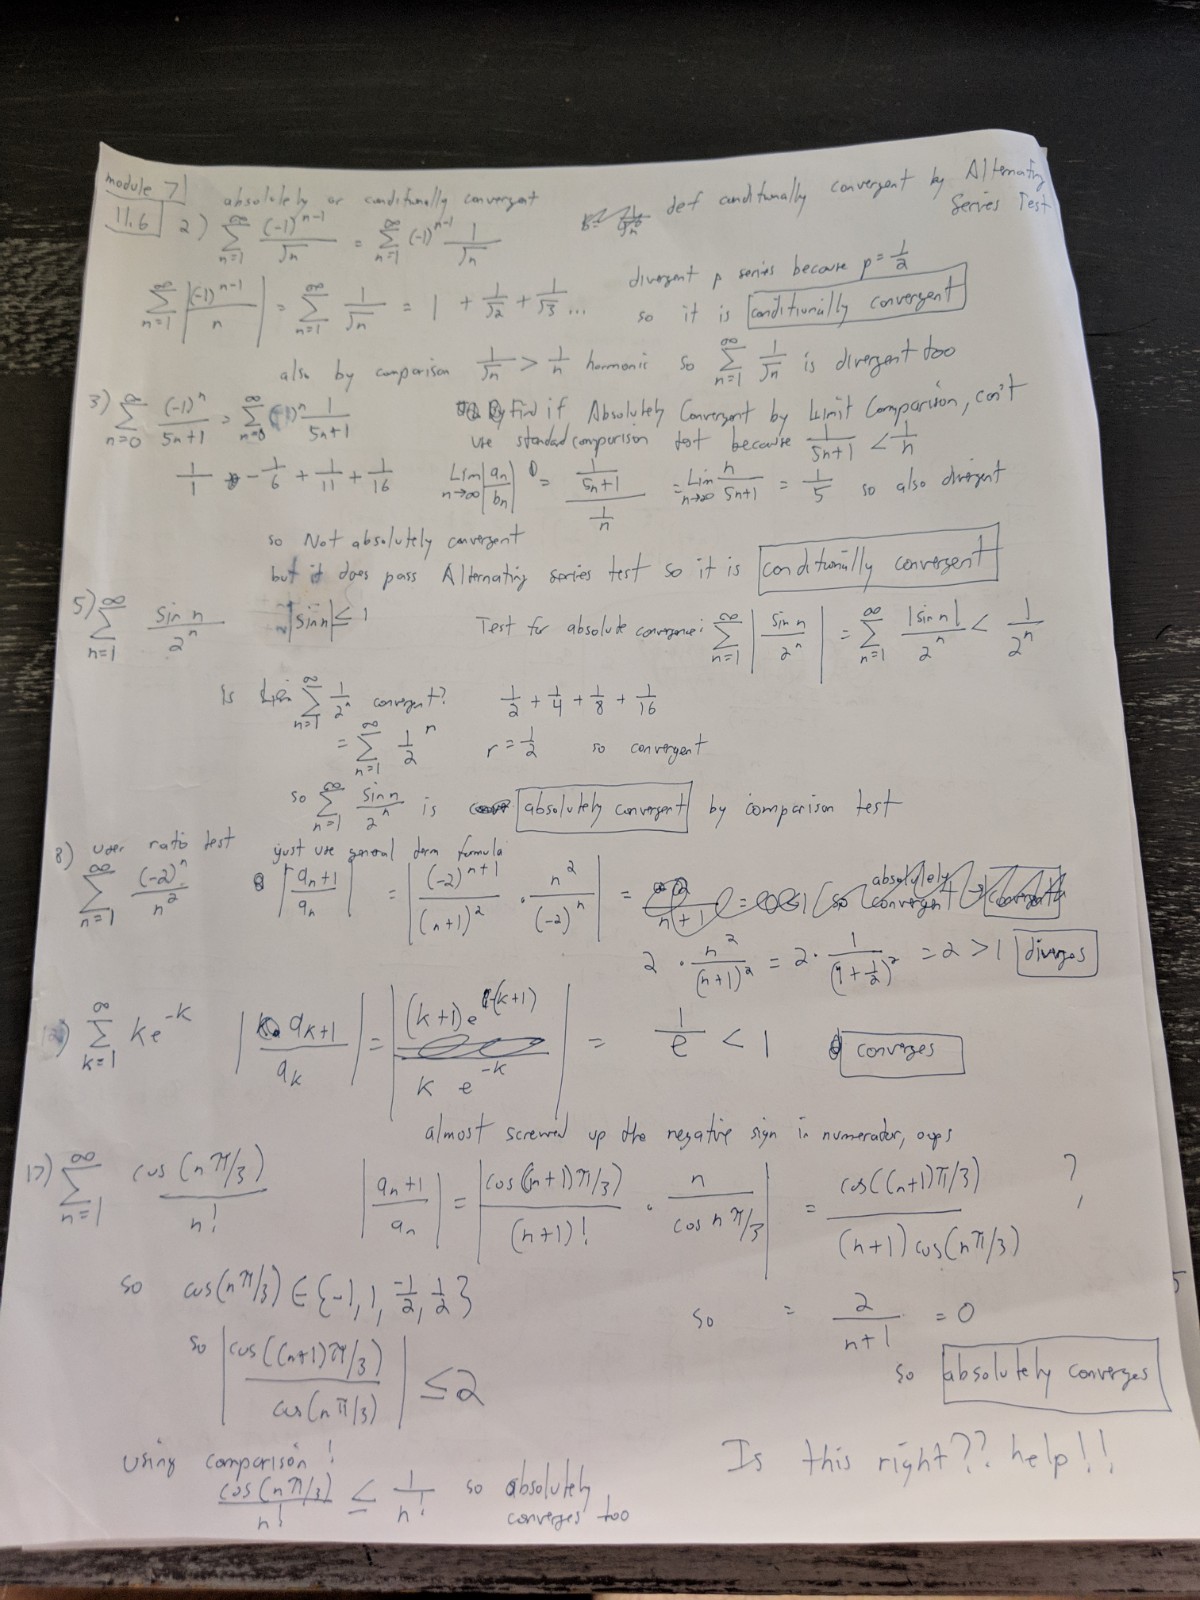 module 7
11.6
absolutely or conditionally convergent
2) ∑_{n=1}^{∞} (-1)^{n-1}/√n = ∑_{n=1}^{∞} (-1)^{n-1} 1/√n
def conditionally convergent by Alternating Series Test
∑_{n=1}^{∞} |(-1)^{n-1}/n| = ∑_{n=1}^{∞} 1/√n = 1 + 1/√2 + 1/√3 ...
divergent p series because p = 1/2
so it is conditionally convergent
also by comparison 1/√n > 1/n harmonic so ∑_{n=1}^{∞} 1/√n is divergent too
3) ∑_{n=0}^{∞} (-1)^n/(5n+1) = ∑_{n=0}^{∞} (-1)^n 1/(5n+1)
Find if Absolutely Convergent by Limit Comparison, can't
use standard comparison test because 1/(5n+1) < 1/n
1/1 - 1/6 + 1/11 + 1/16
Lim_{n→∞} |a_n/b_n| = (1/(5n+1))/(1/n) = Lim_{n→∞} n/(5n+1) = 1/5 so also divergent
so Not absolutely convergent
but it does pass Alternating series test so it is conditionally convergent
5) ∑_{n=1}^{∞} sin n/2^n |sin n| ≤ 1 Test for absolute convergence: ∑_{n=1}^{∞} |sin n/2^n| = ∑_{n=1}^{∞} |sin n|/2^n < 1/2^n
Is ∑_{n=1}^{∞} 1/2^n convergent? 1/2 + 1/4 + 1/8 + 1/16
= ∑_{n=1}^{∞} 1/2^n r = 1/2 so convergent
so ∑_{n=1}^{∞} sin n/2^n is absolutely convergent by comparison test
8) user ratio test just use general term formula
∑_{n=1}^{∞} (-2)^n/n^2 |a_{n+1}/a_n| = |(-2)^{n+1}/(n+1)^2 · n^2/(-2)^n| =
2 · n^2/(n+1)^2 = 2 · 1/(1+1/2)^2 = 2 > 1 diverges
∑_{k=1}^{∞} k e^{-k} |a_{k+1}/a_k| = |(k+1)e^{-(k+1)}/(k e^{-k})| = 1/e < 1 converges
almost screwed up the negative sign in numerator, oops
17) ∑_{n=1}^{∞} cos(nπ/3)/n! |a_{n+1}/a_n| = |cos(n+1)π/3)/(n+1)! · n/(cos nπ/3)| = cos((n+1)π/3)/((n+1) cos(nπ/3)) ?
so cos(nπ/3) ∈ {-1, 1, -1/2, 1/2}
so = 2/(n+1) = 0
so |cos((n+1)π/3)/cos(nπ/3)| ≤ 2
so absolutely converges
using comparison!
cos(nπ/3)/n! ≤ 1/n! so absolutely converges too
Is this right?? help!!